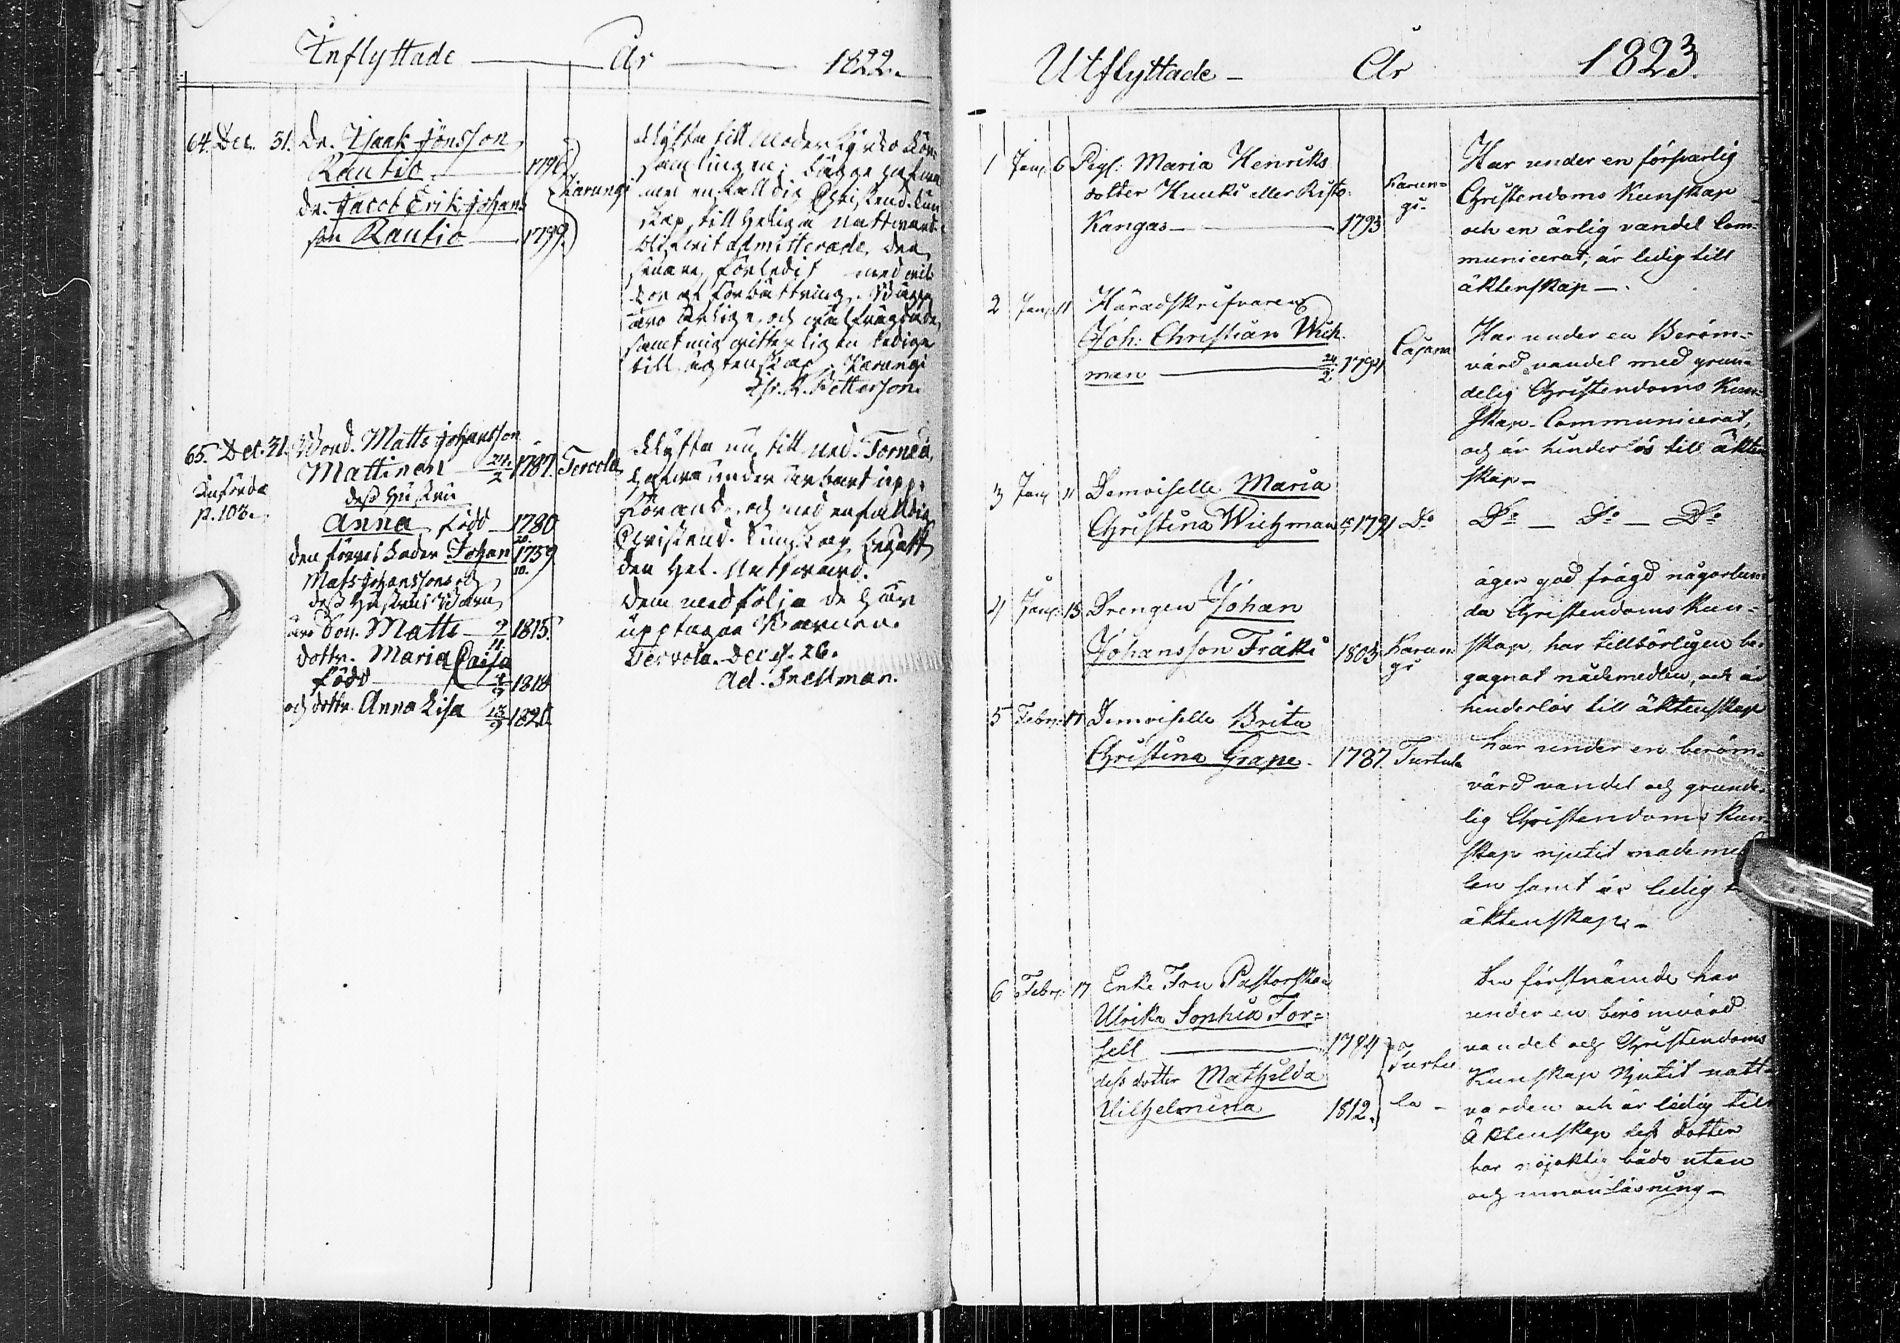 Inflyttade År 1822.
64. Dec. 31. Dr. Isaak Jönsson
Rautio 1796
Karungi
Dr. Jacob Erik Johans
son Rautio 1799
Flytta till Moder Kyrko För-
samlingen; bägge
med enfalldig Christend. Kun
skap, till Heliga Nattvard
blifvit admitterade, den
senare, förledit med
om förbättring. Bägge
äro ärlige, och välfrägdade,
samt mig vitterligen ledige
till ägtenskap. Karungi
Petterson.
65. Dec. 31. Bond. Matts Johansson
Mattinen 24/2 1787. Tervola
Införde
p. 103.
dess Hustru
Anna född 1780
den förres Fader Johan 1759
Mats Johanssons och
dess Hustrus Barn
äro Son. Matts 1815.
dottr. Maria Caisa
född 1818
och dottr. Anna Lisa 13/9 1820.
Flytta nu till Ned. Torneå,
hafva under ärbart upp-
förande, och med enfalldig
Christend. Kunskap begått
den Hel. Nattvard.
Dem medfölja de här
upptagne Barnen.
Tervola. Dec. d. 26.
Ad. Snellman.
Utflyttade År 1823.
1 Janr. 6 Pigl: Maria Henriks
dotter Huuki eller Risto-
Kangas 1793
Karun-
gi-
Har under en försvarlig
Christendoms Kunskap
och en ärlig vandel Com-
municerat, är ledig till
äktenskap.
2 Janr. 11 Häradskrifvaren
Joh: Christian Wich-
man 24/2 1794 Cajana
Har under en Beröm-
värd vandel med grun-
delig Christendoms Kun-
skap Communicerat,
och är hinderlös till äkten
skap
3 Janr. 11 Demoiselle Maria
Christina Wichman 1791 Do
Do — Do — Do
4 Janr. 13 Drengen Johan
Johansson Fräki 1803 Karun
gi
äger god frägd någorlun
da Christendoms Kun-
skap, har tillbörligen be-
gagnat nådemedlen, och är
hinderlös till äktenskap
5 Febr. 17 Demoiselle Brita
Christina Grape 1787. Turtula
har under en beröm-
värd vandel och grunde-
lig Christendoms Kun-
skap njutit nademed
len samt är ledig
äktenskap
6 Febr. 17 Enke Fru Pastorskan
Ulrika Sophia For-
sell 1784
Turtu
dess dotter Mathilda
Wilhelmina 1812.
la
Den förstnämde har
under en berömvärd
vandel och Christendoms
Kunskap Njutit natt-
varden och är ledig till
Äktenskap dess dotter
har nöjaktig både utan
och innanläsning